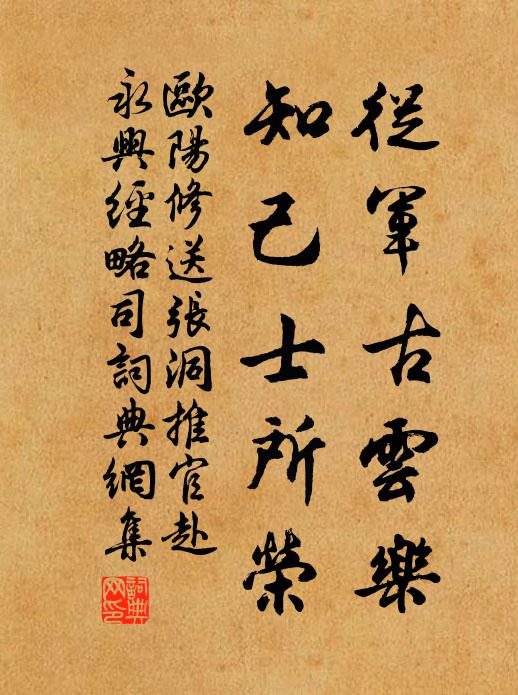 從軍古雲樂
知己士所榮
歐陽修送張洞推官赴
永興經略司詞典網集
詞典網印